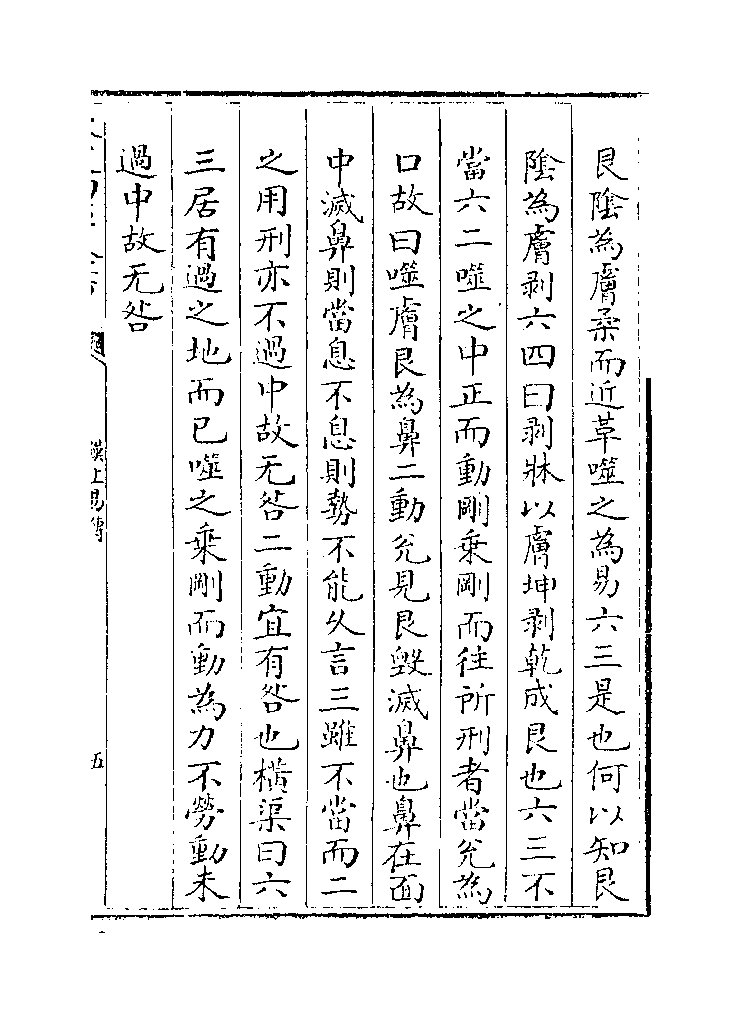 艮陰為膚柔而近革噬之為易六三是也何以知艮
陰為膚剥六四曰剥牀以膚坤剥乾成艮也六三不
當六二噬之中正而動剛乗剛而往所刑者當兊為
口故曰噬膚艮為鼻二動兊見艮毁滅鼻也鼻在面
中滅鼻則當息不息則勢不能乆言三雖不當而二
之用刑亦不過中故无咎二動宜有咎也横渠曰六
三居有過之地而已噬之乗剛而動為力不勞動未
過中故无咎
漢上易傳
五